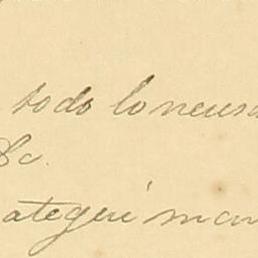 todo lo neces
&c.
ategui man